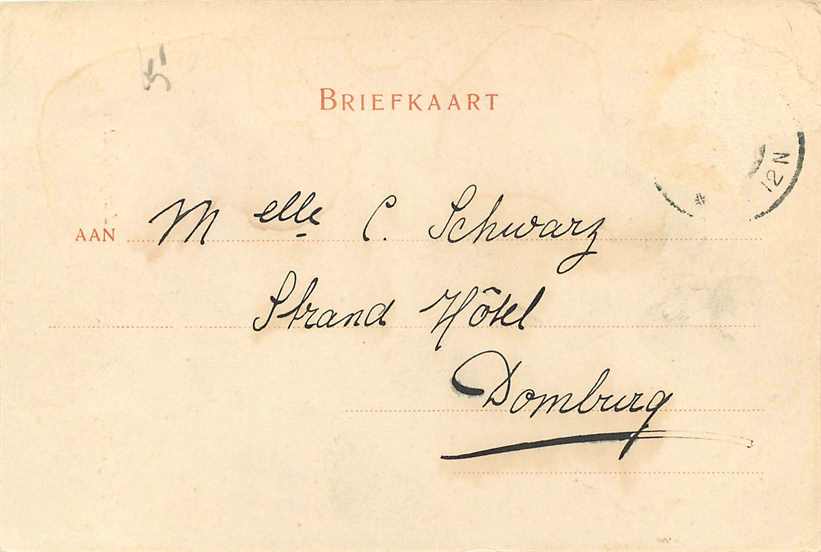 BRIEFKAART
12 N
AAN Melle C. Schwarz
Strand Hôtel
Domburg